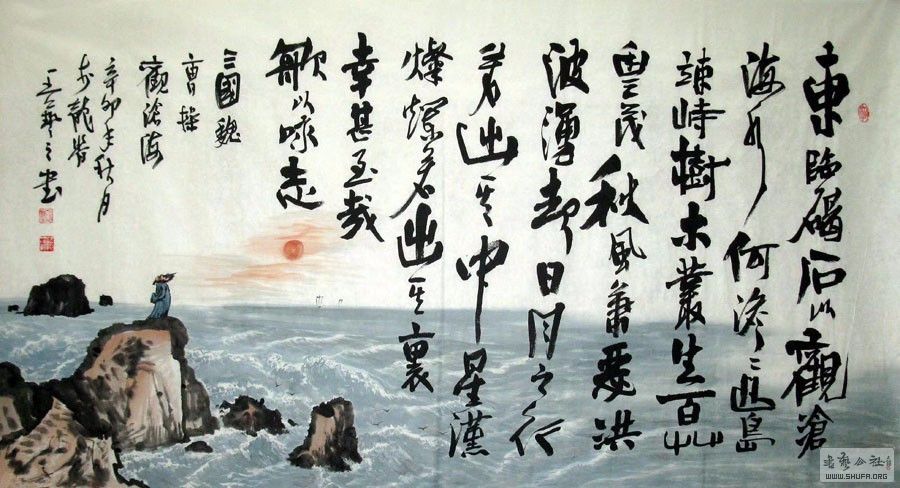 東臨碣石以觀滄
海水何澹〻山島
竦峙樹木叢生百艸
豐茂秋風蕭瑟洪
波湧起日月之行
若出其中星漢
燦爛若出其裏
幸甚至哉
歌以咏志
三國魏
曹操
觀滄海
辛卯年秋月
於龍
王之書
WWW.SHUFA.ORG